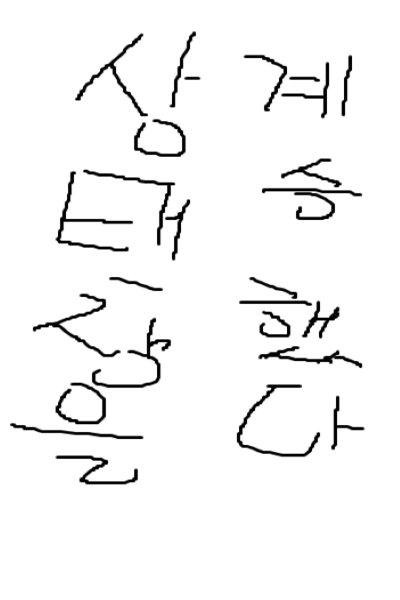 상태창을
계승했다